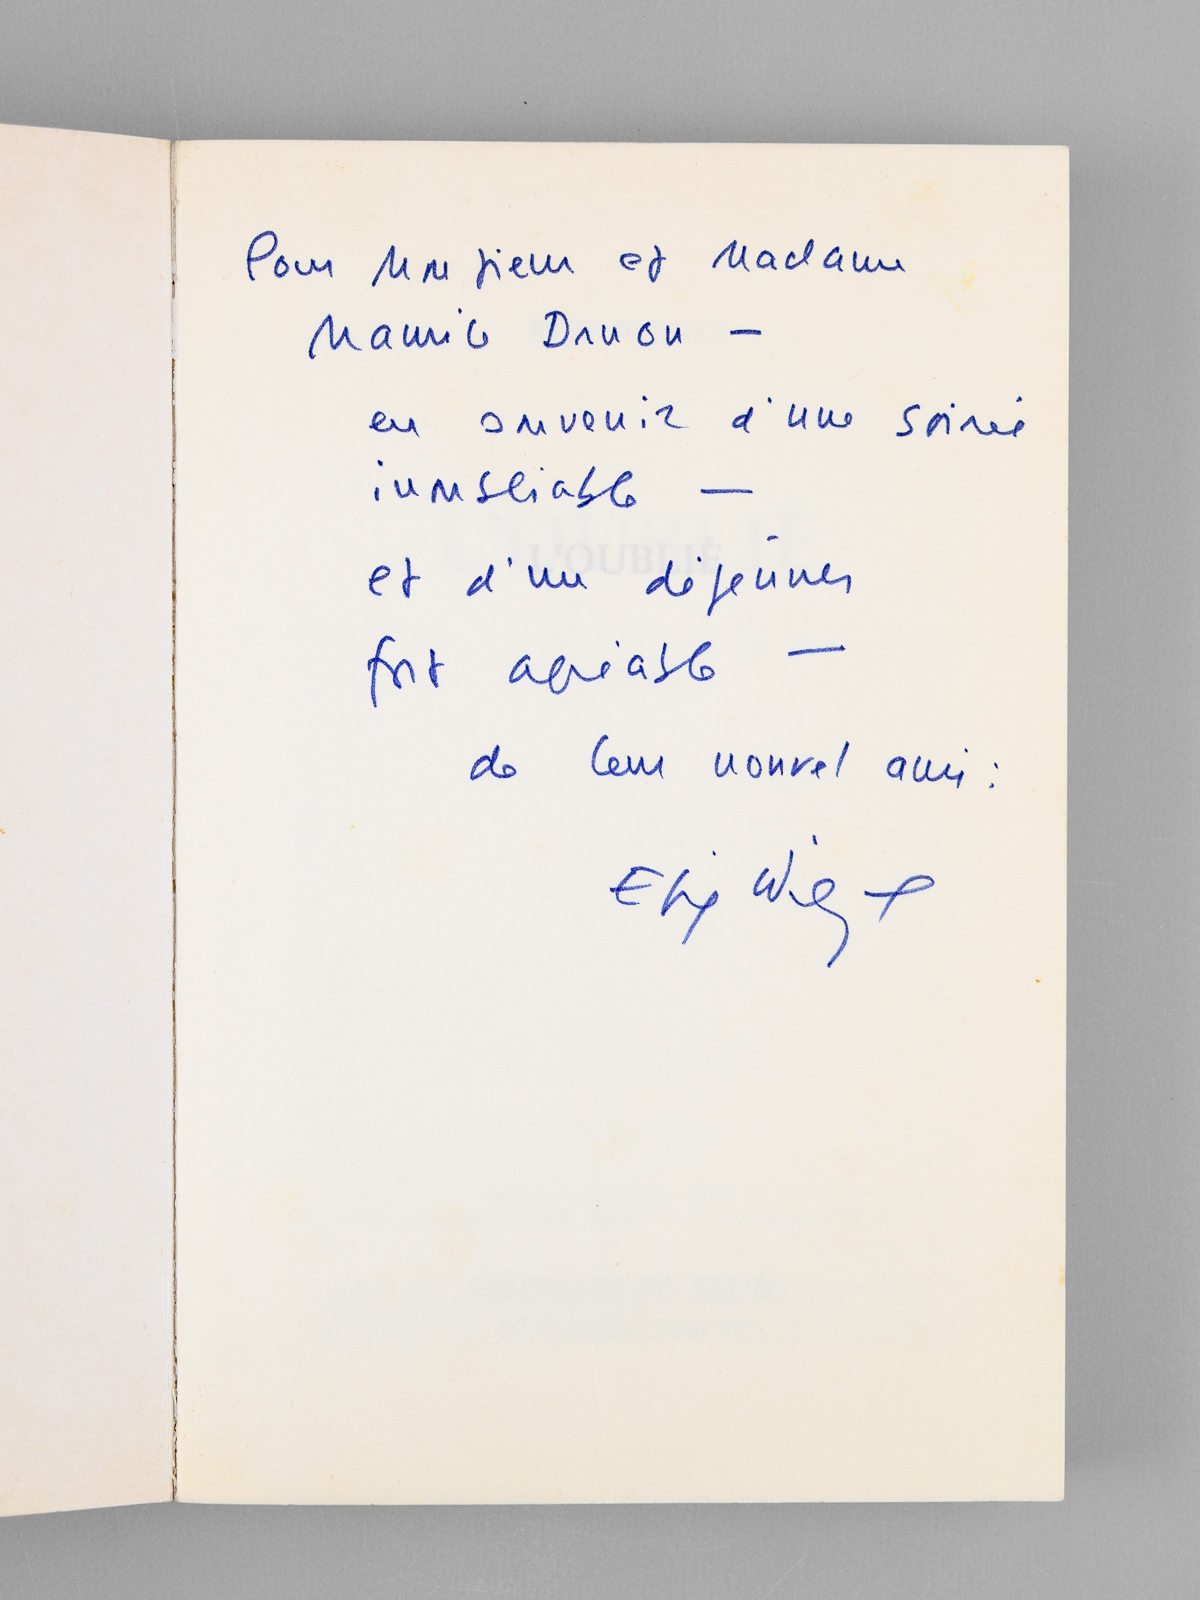 Pour Monsieur et Madame
Maurice Druon —
en souvenir d'une soirée
inoubliable —
L'OUBLIÉ
et d'un déjeûner
fort agréable —
de leur nouvel ami :
Elie Wiesel